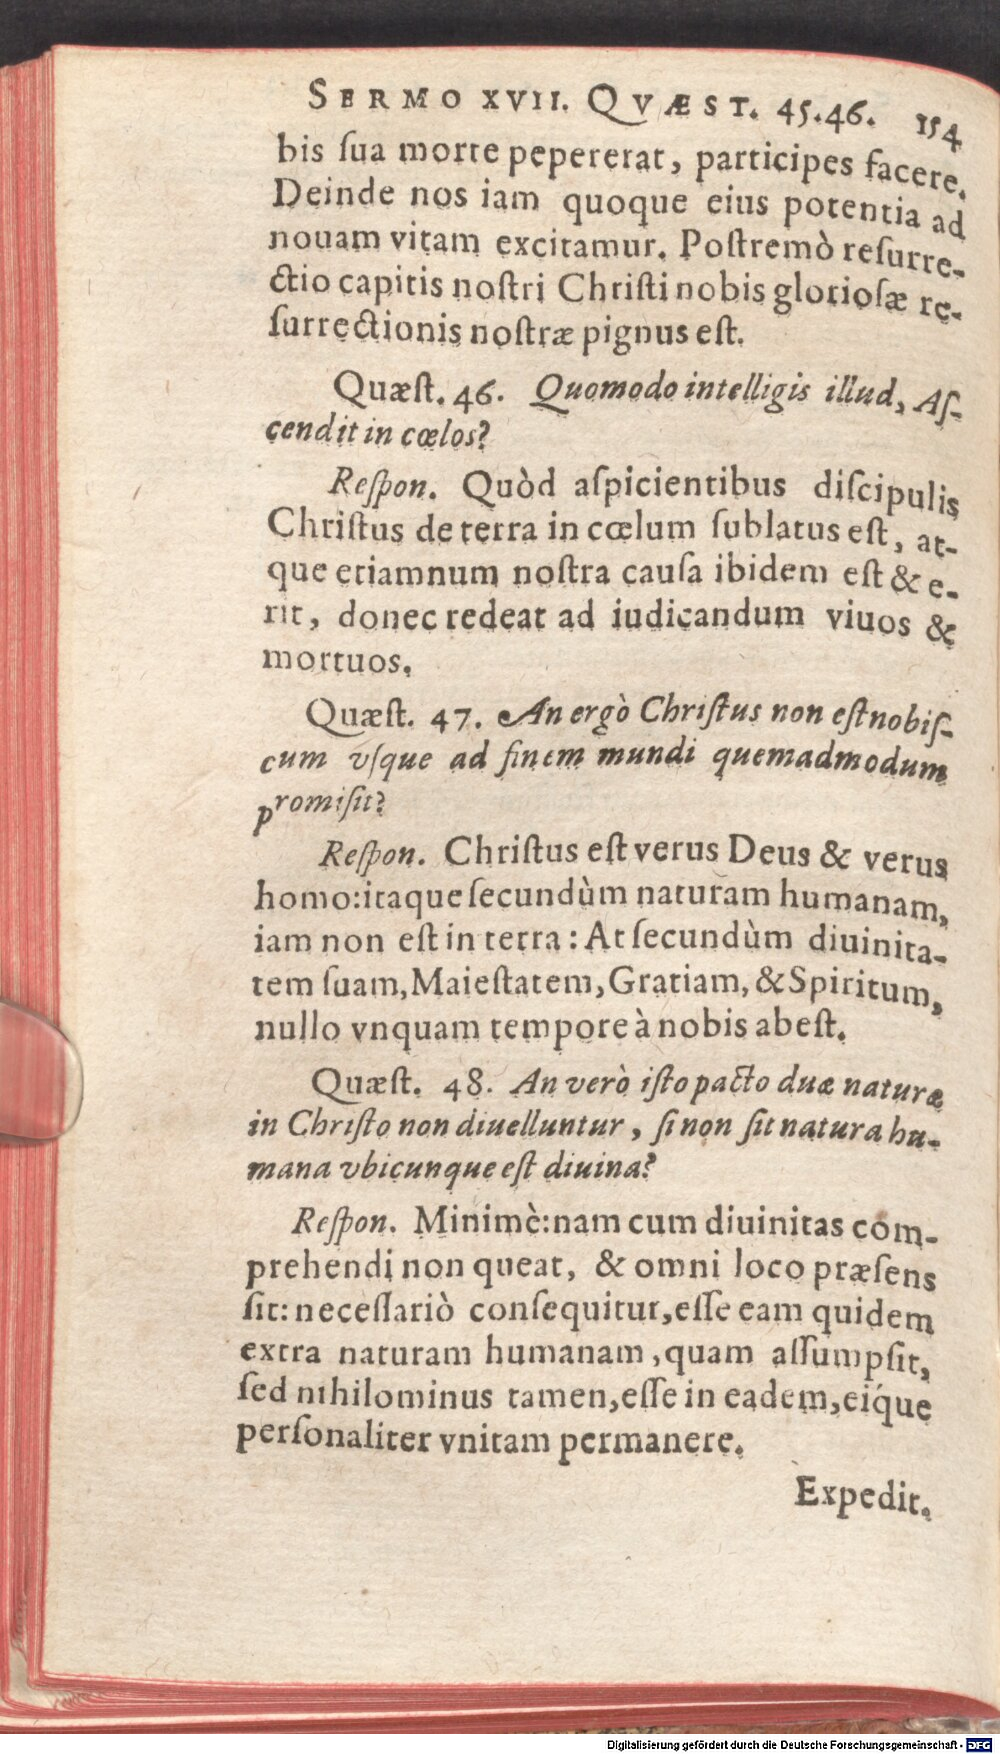 SERMO XVII. QVÆST. 45.46. 154
bis ſua morte pepererat, participes facere.
Deinde nos iam quoque eius potentia ad
nouam vitam excitamur. Poſtremò reſurre-
ctio capitis noſtri Chriſti nobis glorioſæ re-
ſurrectionis noſtræ pignus eſt.
Quæſt. 46. Quomodo intelligis illud, Aſ-
cendit in cœlos?
Reſpon. Quòd aſpicientibus diſcipulis
Chriſtus de terra in cœlum ſublatus eſt, at-
que etiamnum noſtra cauſa ibidem eſt & e-
rit, donec redeat ad iudicandum viuos &
mortuos.
Quæſt. 47. An ergò Chriſtus non eſt nobiſ-
cum vſque ad finem mundi quemadmodum
promiſit?
Reſpon. Chriſtus eſt verus Deus & verus
homo: itaque ſecundùm naturam humanam,
iam non eſt in terra: At ſecundùm diuinita-
tem ſuam, Maieſtatem, Gratiam, & Spiritum,
nullo vnquam tempore à nobis abeſt.
Quæſt. 48. An verò iſto pacto duæ naturæ
in Chriſto non diuelluntur, ſi non ſit natura hu-
mana vbicunque eſt diuina?
Reſpon. Minimè: nam cum diuinitas com-
prehendi non queat, & omni loco præſens
ſit: neceſſariò conſequitur, eſſe eam quidem
extra naturam humanam, quam aſſumpſit,
ſed nihilominus tamen, eſſe in eadem, eíque
perſonaliter vnitam permanere.
Expedit.
Digitalisierung gefördert durch die Deutsche Forschungsgemeinschaft - DFG